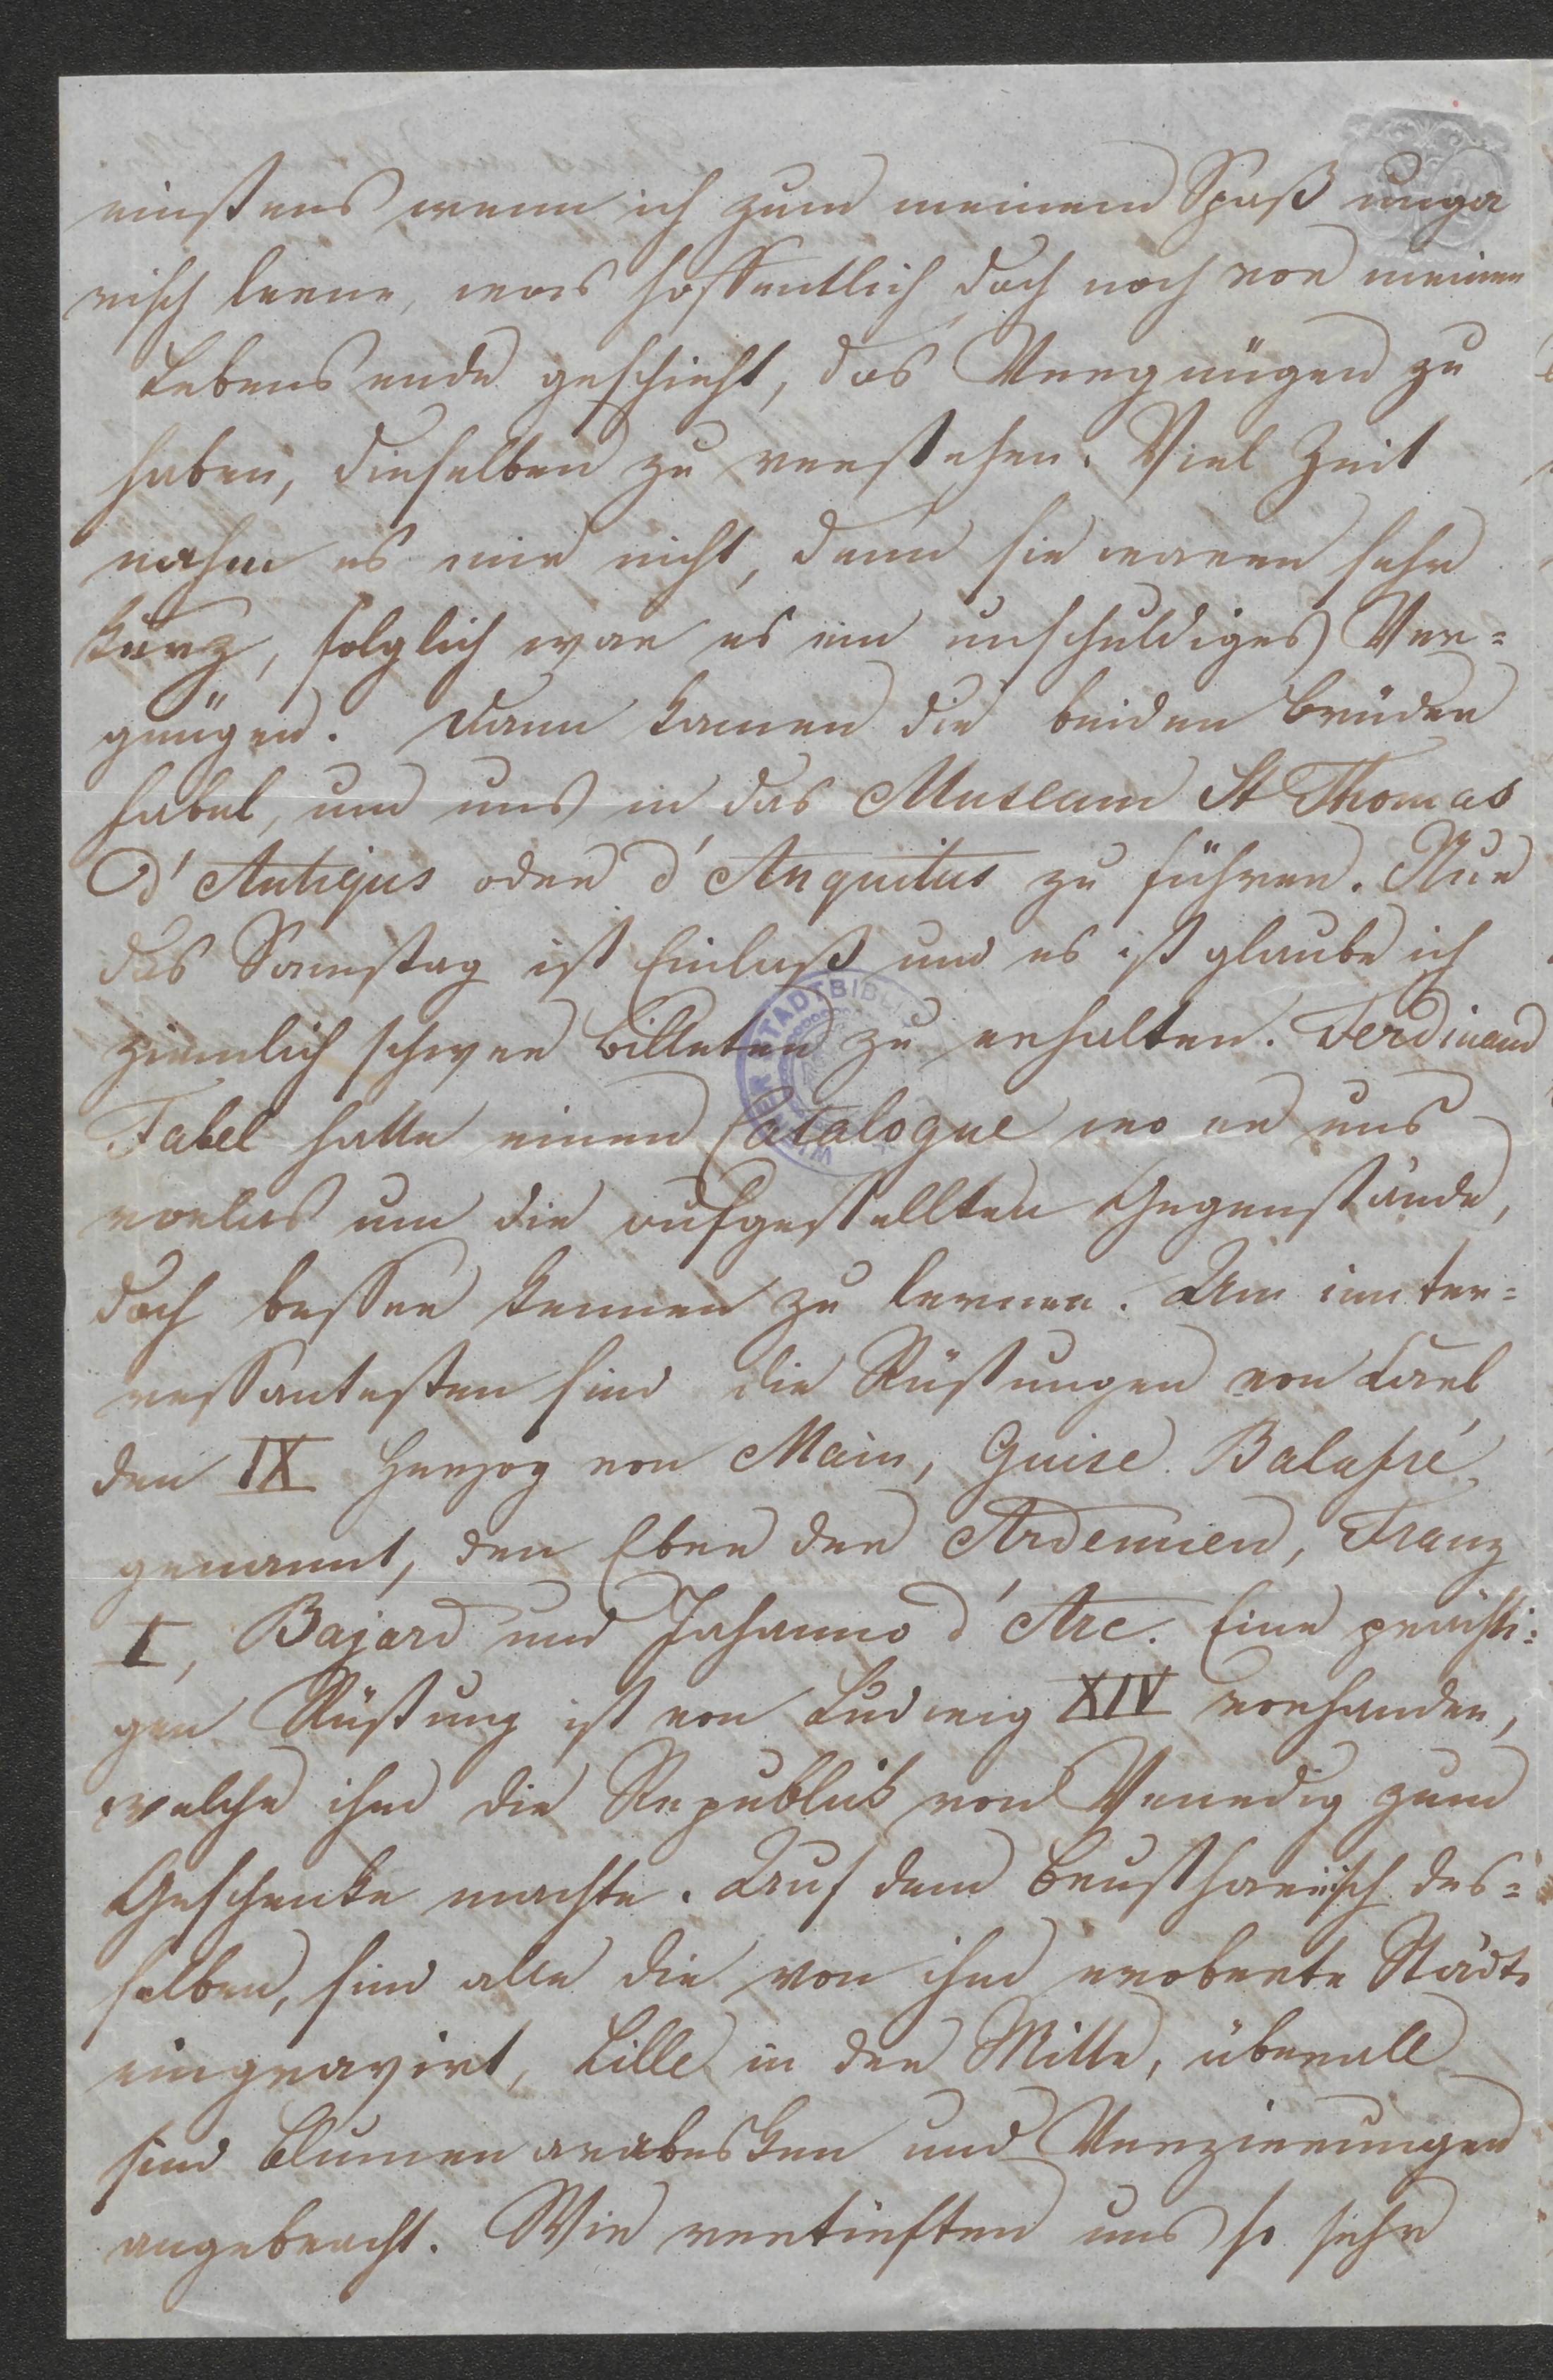 einstens wenn ich zum meinem Spaß unga
risch lerne, was hoffentlich doch noch vor meinem
Lebensende geschieht, das Vergnügen zu
haben, dieselben zu verstehen. Viel Zeit
nahm es mir nicht, denn sie waren sehr
kurz, folglich war es ein unschuldiges Ver=
gnügen. Dann kamen die beiden Brüder
Fabel, um uns in das Museum St Thomas
d'Antiqus oder d'Anquitus zu führen. Nur
des Samstag ist Einlaß und es ist glaube ich
ziemlich schwer Billeten zu erhalten. Ferdinand
Fabel hatte einen Catalogue wo er uns
vorlas um die aufgestellten Gegenstände,
doch besser kennen zu lernen. Am inter=
ressantesten sind die Rüstungen von Karl
den IX Herzog von Main, Guise Balafré
genannt, den Eber der Ardennen, Franz
I, Bajard und Johanna d'Arc. Eine prächti=
gen Rüstung ist von Ludwig XIV vorhanden,
welche ihm die Republick von Venedig zum
Geschenke machte. Auf dem Brustharnisch des=
selben, sind alle die von ihm eroberte Städte
eingravirt, Lille in der Mitte, überall
sind Blumen arabesken und Verzierungen
angebracht. Wir vertieften uns so sehr
WIENER STADTBIBLI